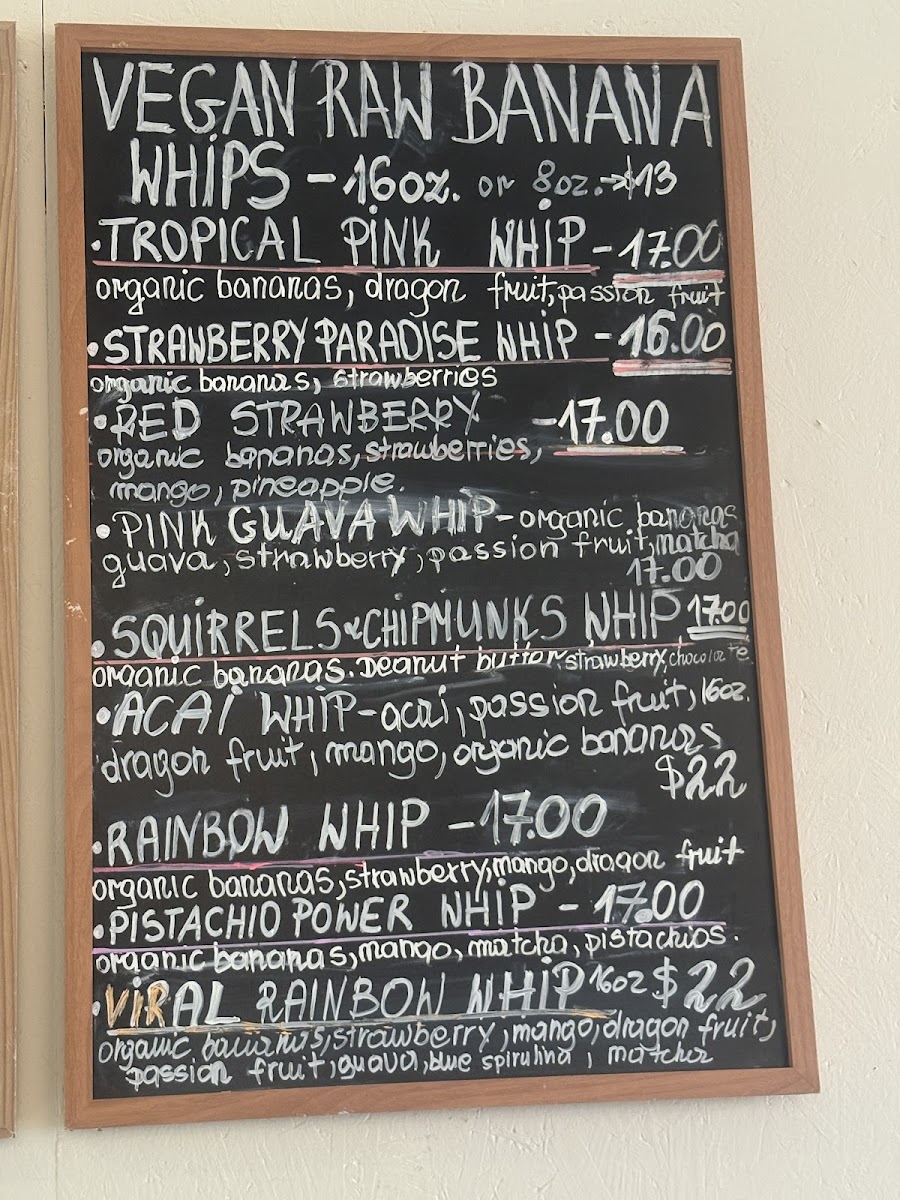 VEGAN RAW BANANA
WHIPS - 16oz. or 8oz.→$13
•TROPICAL PINK WHIP - 17.00
organic bananas, dragon fruit, passion fruit
•STRAWBERRY PARADISE WHIP - 16.00
organic bananas, strawberries
•RED STRAWBERRY -17.00
organic bananas, strawberries,
mango, pineapple.
•PINK GUAVA WHIP - organic bananas
guava, strawberry, passion fruit, matcha
17.00
•SQUIRRELS & CHIPMUNKS WHIP 17.00
organic bananas. peanut butter, strawberry, chocolate
•ACAI WHIP - acai, passion fruit, 16oz.
dragon fruit, mango, organic bananas
$22
•RAINBOW WHIP - 17.00
organic bananas, strawberry, mango, dragon fruit
•PISTACHIO POWER WHIP - 17.00
organic bananas, mango, matcha, pistachios.
•VIRAL RAINBOW WHIP 16oz $22
organic bananas, strawberry, mango, dragon fruit,
passion fruit, guava, blue spirulina, matcha